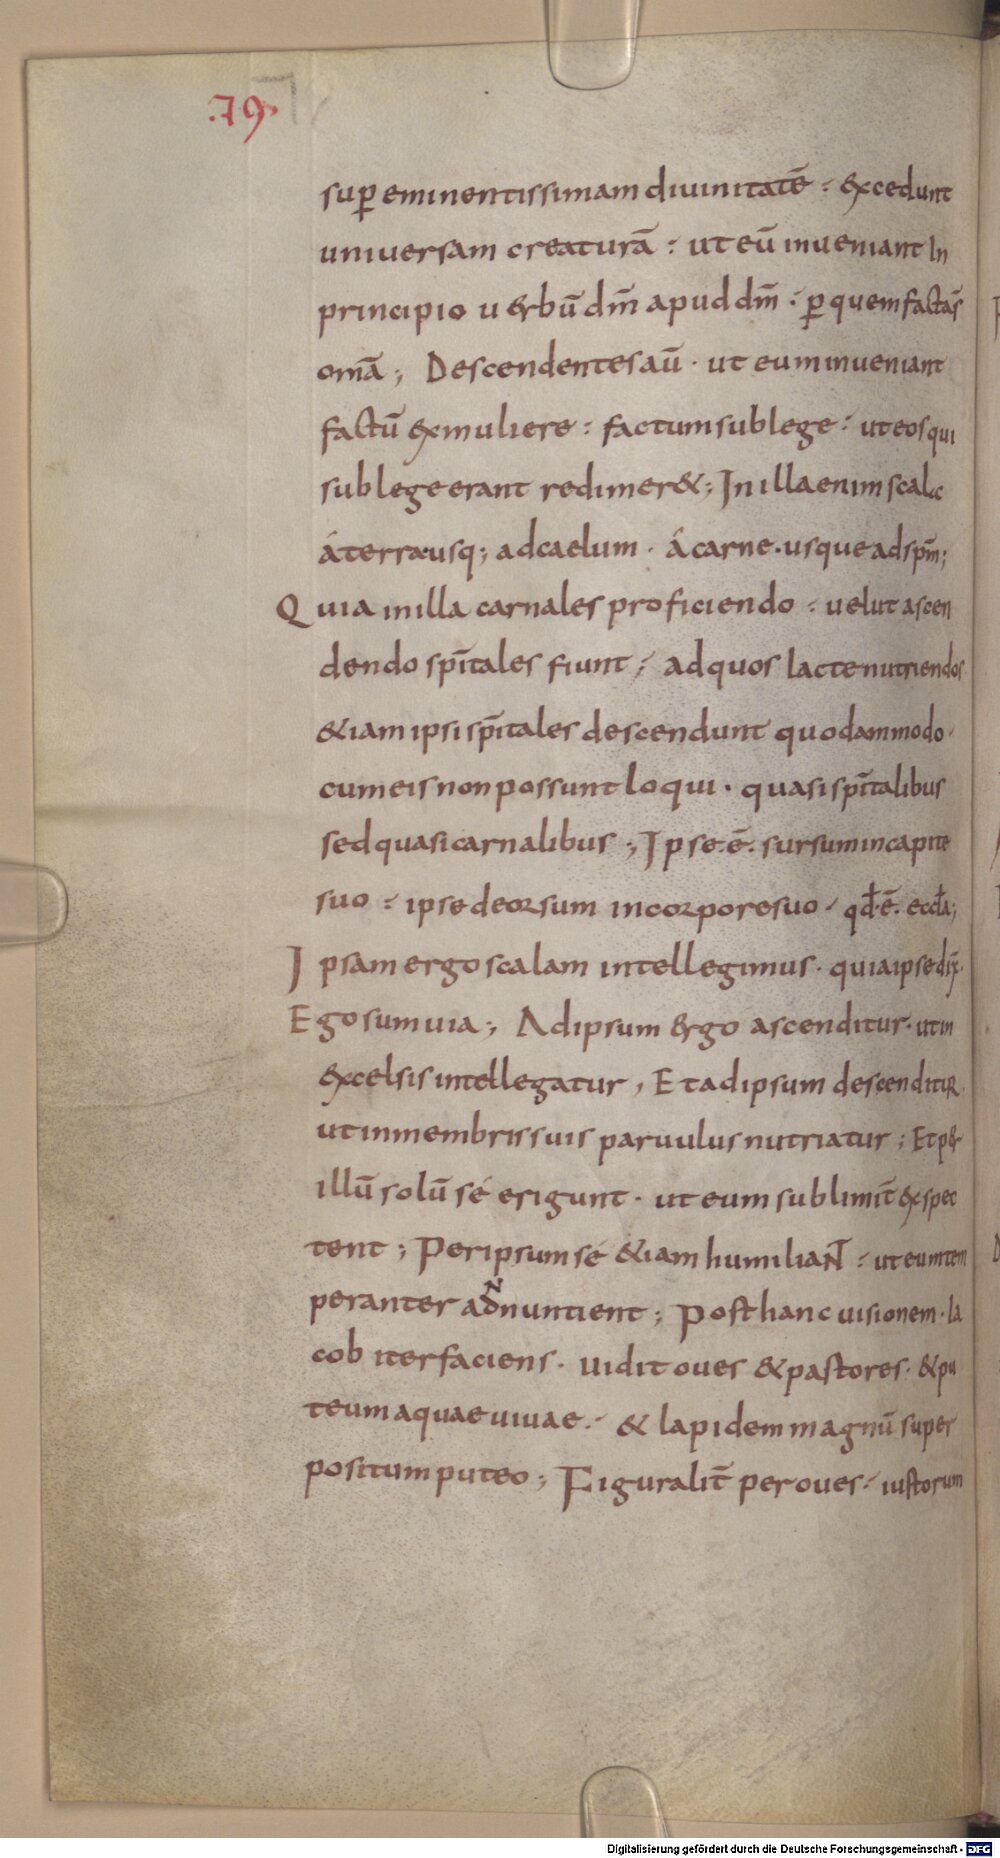 .79.
sup̱ eminentissimam diuinitatē : excedunt
uniuersam creaturā : ut eū inueniant In
principio uerbū dm̄ apud dm̄ · ꝑ quem facta s̄
omā ; Descendentes aū · ut eum inueniant
factū ex muliere : factum sub lege : ut eos qui
sub lege erant redimer& ; In illa enim scala
á terra usq; ad caelum · á carne · usque ad spm̄ ;
Quia in illa carnales proficiendo : uelut ascen
dendo spītales fiunt ; ad quos lacte nutriendos
&iam ipsi spītales descendunt quodammodo ·
cum eis non possunt loqui · quasi spītalibus
sed quasi carnalibus ; Ipse · ē · sursum in capite
suo : ipse deorsum in corpore suo · qđ · ē · eccła ;
Ipsam ergo scalam intellegimus · quia ipse dix̄ ·
Ego sum uia ; Ad ipsum ergo ascenditur · ut in
excelsis intellegatur , Et ad ipsum descenditur
ut in membris suis paruulus nutriatur ; Et per
illū solū sé erigunt · ut eum sublimit̄ exspec
tent ; Per ipsum sé &iam humiliant : ut eum tem
peranter adnuntient ; Post hanc uisionem · Ia
cob iter faciens · uidit oues & pastores · & pu
teum aquae uiuae · & lapidem magnū super
positum puteo ; Figuralit̄ per oues · iustorum
Digitalisierung gefördert durch die Deutsche Forschungsgemeinschaft - DFG